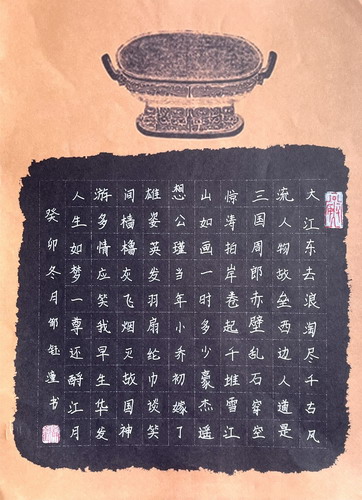 大江东去浪淘尽千古风
流人物故垒西边人道是
三国周郎赤壁乱石穿空
惊涛拍岸卷起千堆雪江
山如画一时多少豪杰遥
想公瑾当年小乔初嫁了
雄姿英发羽扇纶巾谈笑
间樯橹灰飞烟灭故国神
游多情应笑我早生华发
人生如梦一尊还酹江月
癸卯冬月邹钰潼书